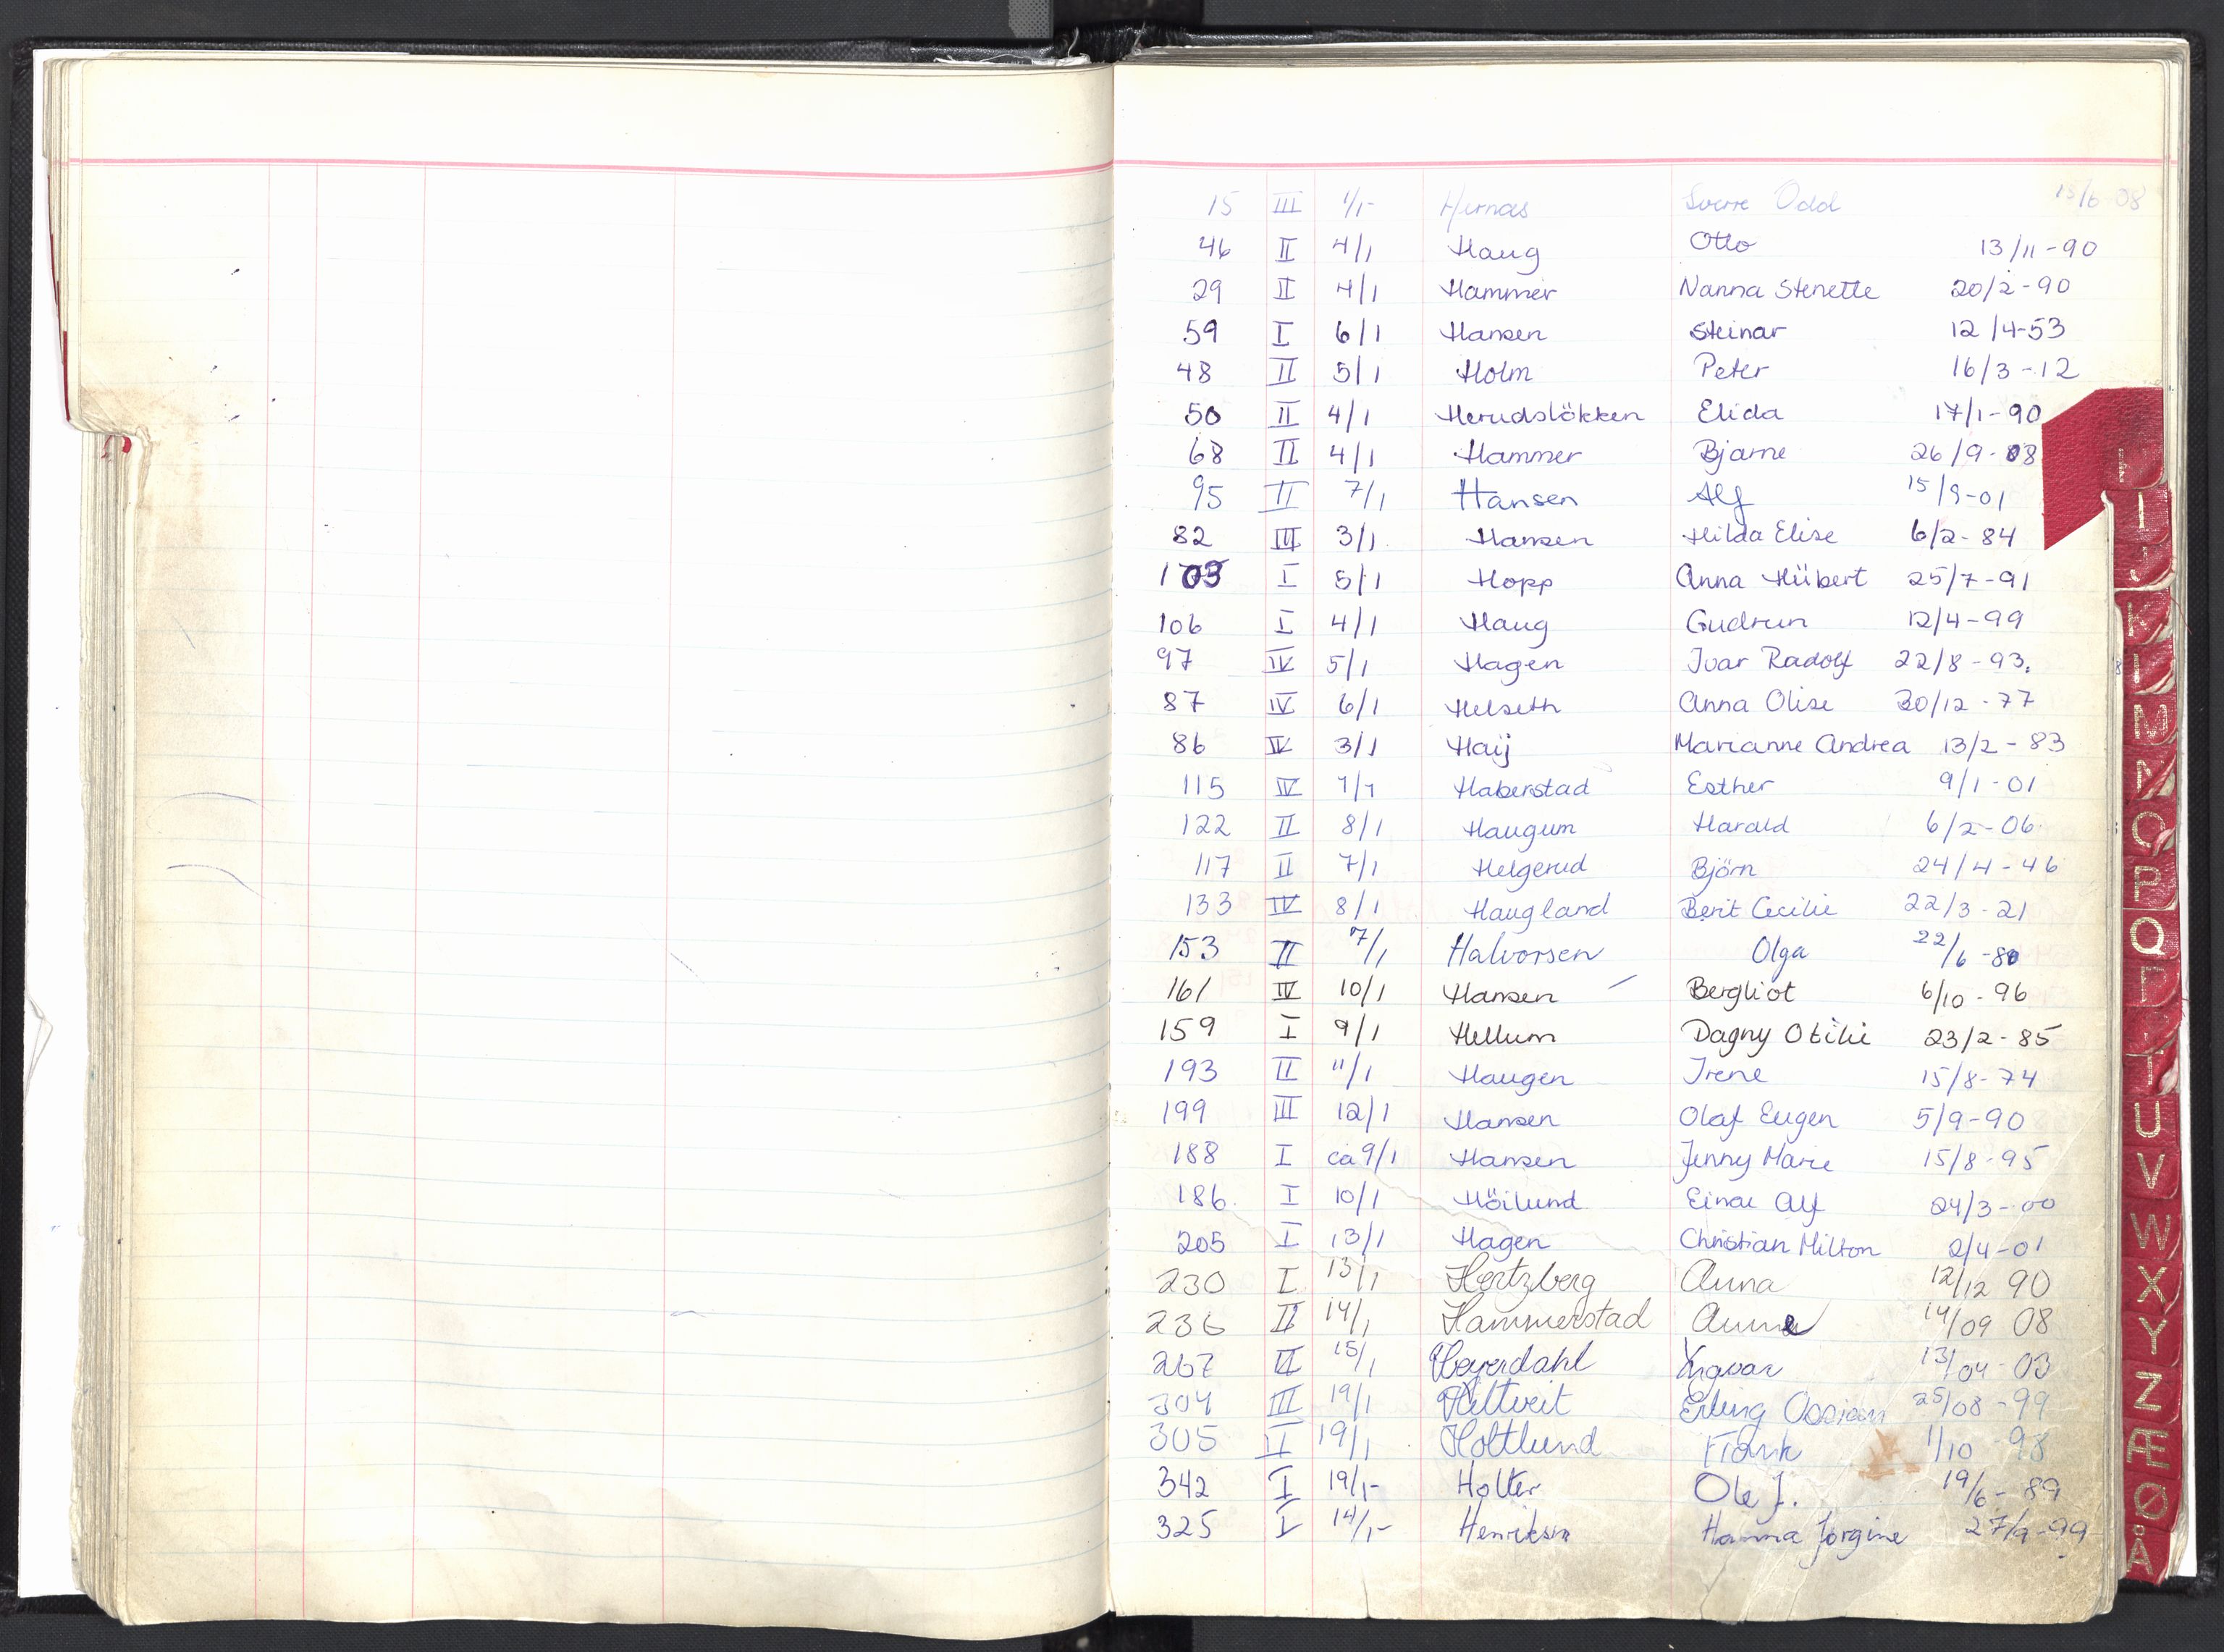 15 III 1/1- Hernæs Sverre Odd 13/6-08
46 II 4/1 Haug Otto 13/11-90
29 II 4/1 Hammer Nanna Stenette 20/2-90
59 I 6/1 Hansen Steinar 12/4-53
48 II 5/1 Holm Peter 16/3-12
50 II 4/1 Herudslökken Elida 17/1-90
68 II 4/1 Hammer Bjarne 26/9-08
95 II 7/1 Hansen Alf 15/9-01
82 III 3/1 Hansen Hilda Elise 6/2-84
103 I 5/1 Hopp Anna Hübert 25/7-91
106 I 4/1 Haug Gudrun 12/4-99
97 IV 5/1 Hagen Ivar Radolf 22/8-93.
87 IV 6/1 Helseth Anna Olise 30/12-77
86 IV 3/1 Haij Marianne Andrea 13/2-83
115 IV 7/1 Haberstad Esther 9/1-01
122 II 8/1 Haugum Harald 6/2-06
117 II 7/1 Helgerud Björn 24/4-46
133 IV 8/1 Haugland Berit Cecilie 22/3-21
153 II 7/1 Halvorsen Olga 22/6-80
161 IV 10/1 Hansen Bergliot 6/10-96
159 I 9/1 Hellum Dagny Otilie 23/2-85
193 II 11/1 Haugen Irene 15/8-74
199 III 12/1 Hansen Olaf Eugen 5/9-90
188 I ca 9/1 Hansen Jenny Marie 15/8-95
186. I 10/1 Höilund Einar Alf 24/3-00
205 I 13/1 Hagen Christian Milton 2/4-01
230 I 13/1 Hertzberg Anna 12/12 90
236 II 14/1 Hammerstad Anne 14/09 08
267 II 15/1 Heyerdahl Yngvar 13/04-03
304 III 19/1 Hiltveit Erling Ossian 25/08-99
305 I 19/1 Holtlund Frank 1/10-98
342 I 19/1- Holter Ole J. 19/6-89
325 I 14/1- Henriksen Hanna Jorgine 27/9-99
I
J
K
L
M
N
O
P
Q
T
U
V
W
X
Y
Z
Æ
Ø
Å